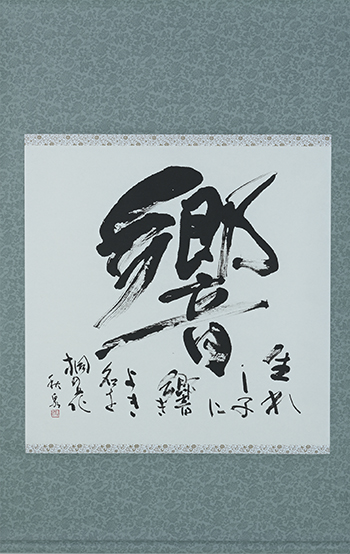 響
生れ
し子
に
響き
よき
名を
桐の花